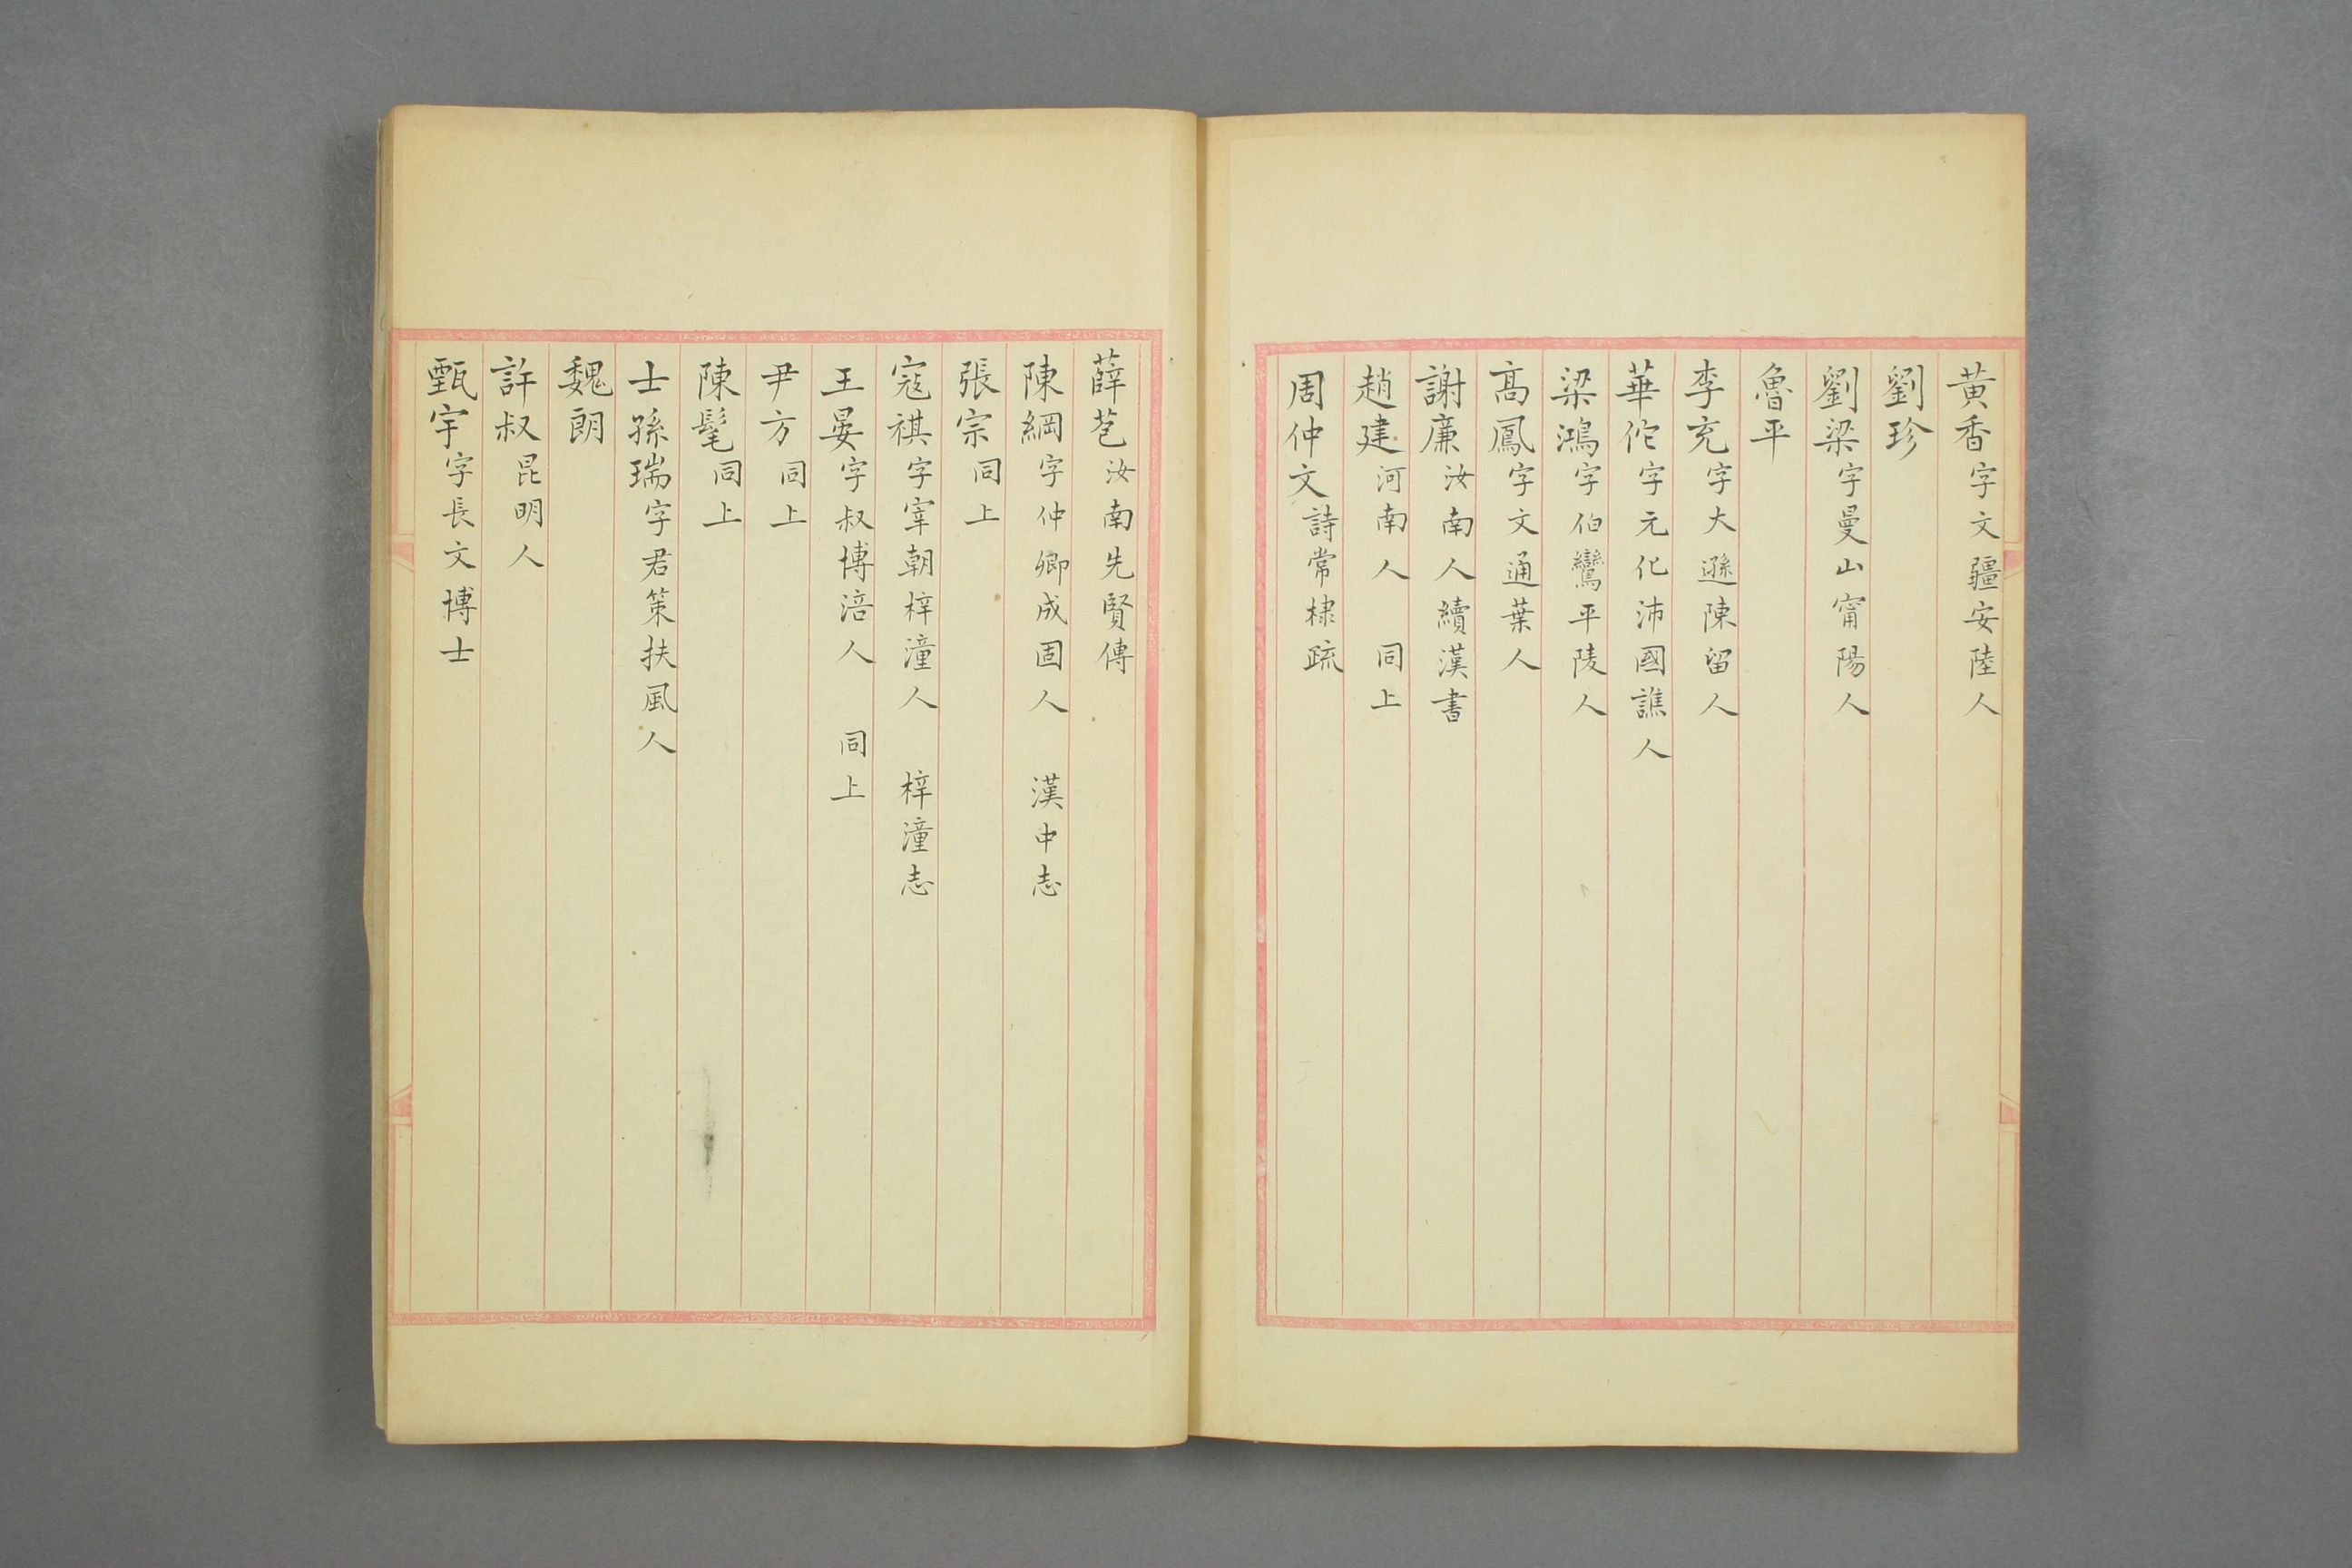 黄香字文疆安陸人
劉珍
劉梁字曼山甯陽人
魯平
李充字大遜陳留人
華佗字元化沛國譙人
梁鴻字伯鸞平陵人
高鳳字文通葉人
謝廉汝南人續漢書
趙建河南人　同上
周仲文詩常棣疏
薛苞汝南先賢傳
陳綱字仲卿成固人　漢中志
張宗同上
寇祺字宰朝梓潼人　梓潼志
王晏字叔博涪人　同上
尹方同上
陳髦同上
士孫瑞字君策扶風人
魏朗
許叔昆明人
甄宇字長文博士